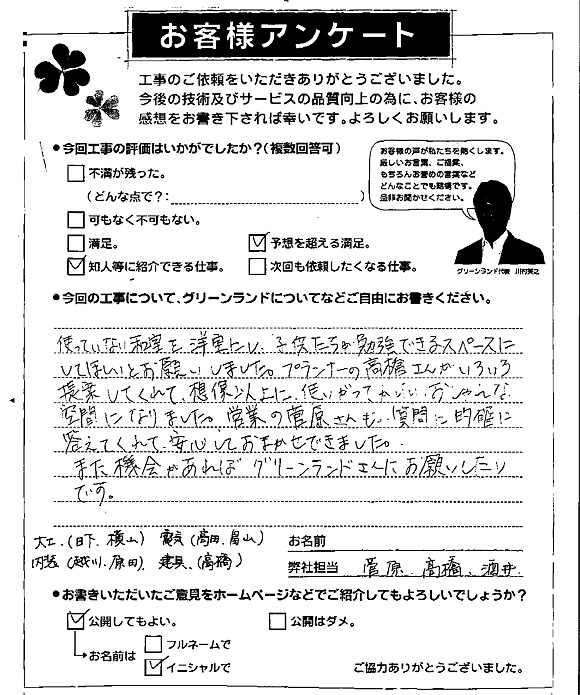 お客様アンケート
工事のご依頼をいただきありがとうございました。
今後の技術及びサービスの品質向上の為に、お客様の
感想をお書き下されば幸いです。よろしくお願いします。
●今回工事の評価はいかがでしたか?(複数回答可)
不満が残った。
(どんな点で?: )
可もなく不可もない。
満足。
予想を超える満足。
知人等に紹介できる仕事。
次回も依頼したくなる仕事。
お客様の声が私たちを熱くします。
厳しいお言葉、ご提案、
もちろんお誉めの言葉など
どんなことでも結構です。
是非お聞かせください。
グリーンランド代表
●今回の工事について、グリーンランドについてなどご自由にお書きください。
使っていない和室を洋室にし、子供たちが勉強できるスペースに
してほしいとお願いしました。プランナーの高橋さんがいろいろ
提案してくれて、想像以上に、使いがってがいい、おしゃれな
空間になりました。営業の菅原さんも、質問に的確に
答えてくれて、安心しておまかせできました。
また機会があればグリーンランドさんにお願いしたい
です。
大工、(日下、横山) 電気(高田、畠山)
内装(越川、原田)、建具、(高橋)
お名前
弊社担当 菅原、高橋、酒井
●お書きいただいたご意見をホームページなどでご紹介してもよろしいでしょうか?
公開してもよい。
公開はダメ。
お名前は
フルネームで
イニシャルで
ご協力ありがとうございました。